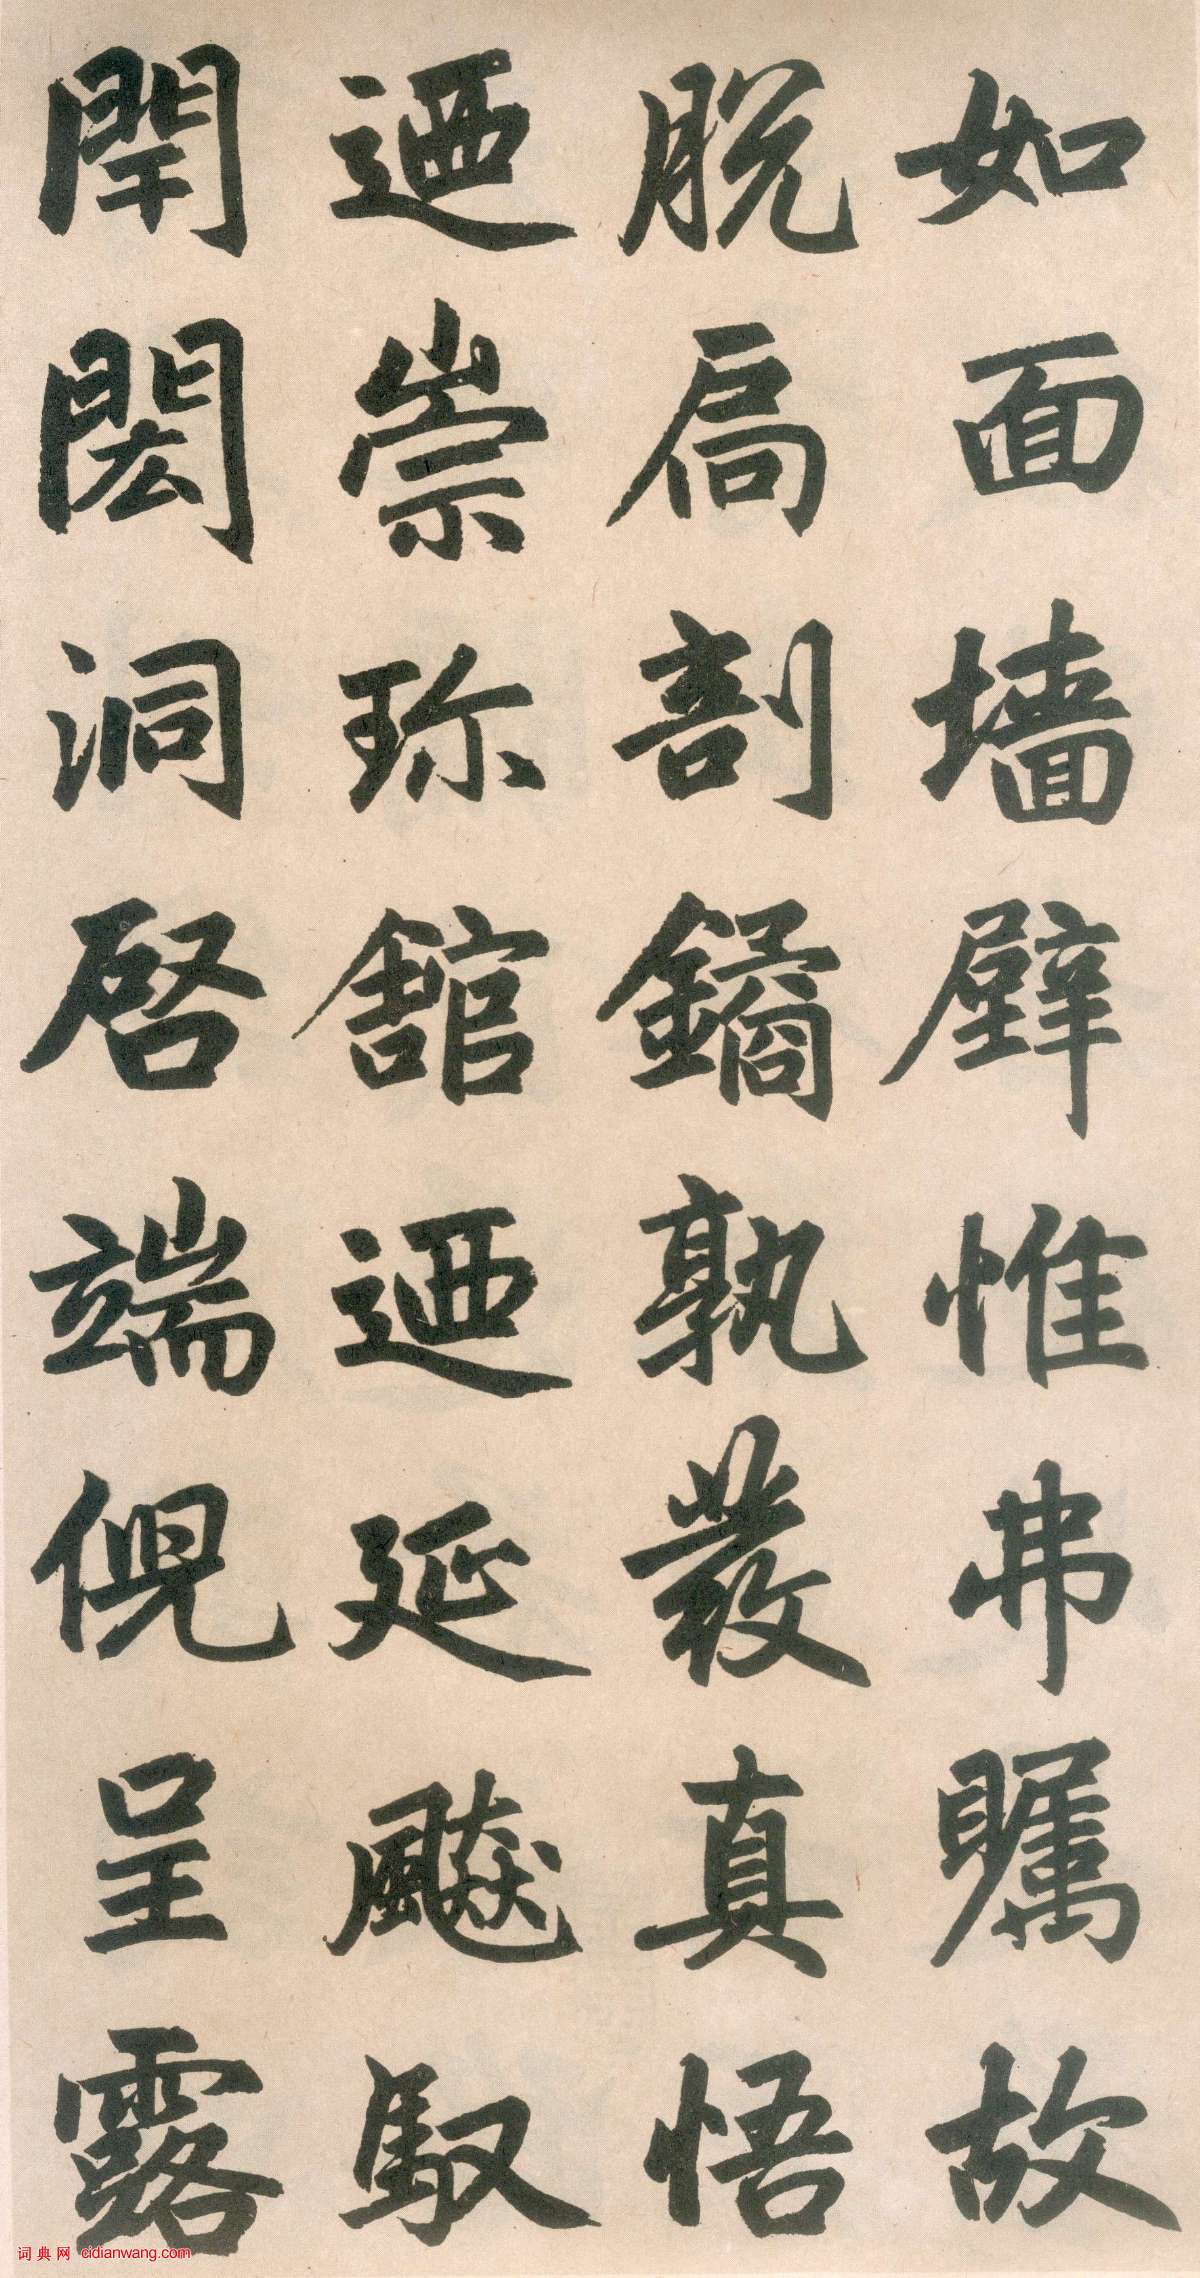 如面墙壁惟弗矚故
脱扃剖鐍孰發真悟
迺崇珎舘迺延飈馭
閈閎洞啓端倪呈露
词典网 cidianwang.com